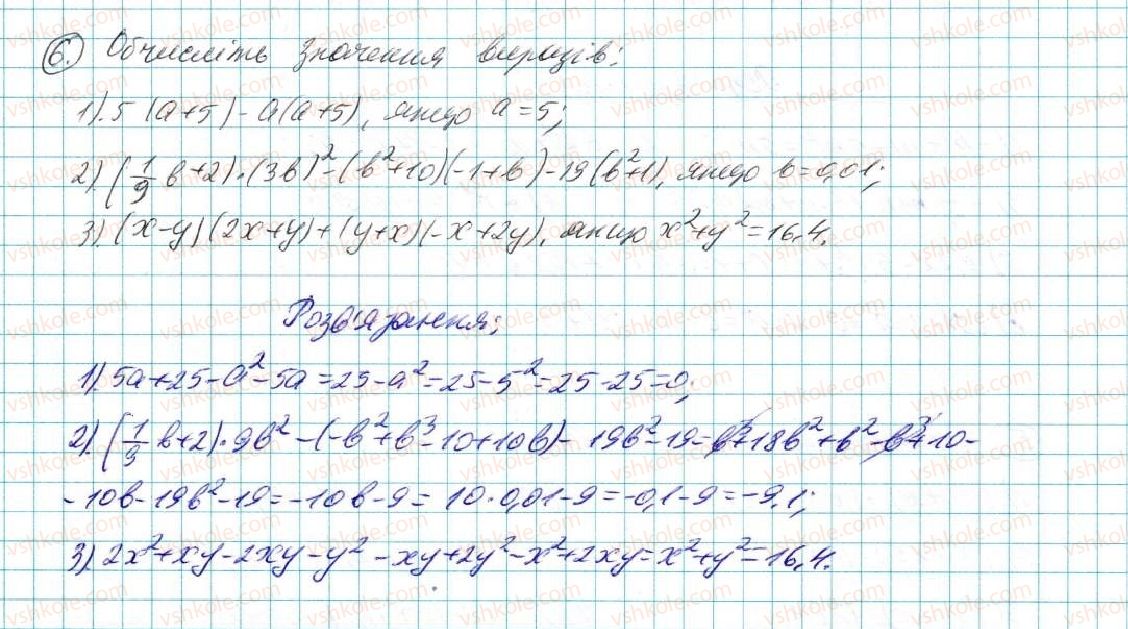 6. Обчисліть значення виразів:
1). 5(a+5)-a(a+5), якщо a=5;
2) (1/9 b+2)·(3b)²-(b²+10)(-1+b)-19(b²+1), якщо b=0,01;
3) (x-y)(2x+y)+(y+x)(-x+2y), якщо x²+y²=16,4.
Розв'язання;
1). 5a+25-a²-5a=25-a²=25-5²=25-25=0;
2). (1/9 b+2)·9b²-(-b²+b³-10+10b)-19b²-19=b³+18b²+b²-b³+10-
-10b-19b²-19=-10b-9=10·0,01-9=-0,1-9=-9,1;
3) 2x²+xy-2xy-y²-xy+2y²-x²+2xy=x²+y²=16,4.